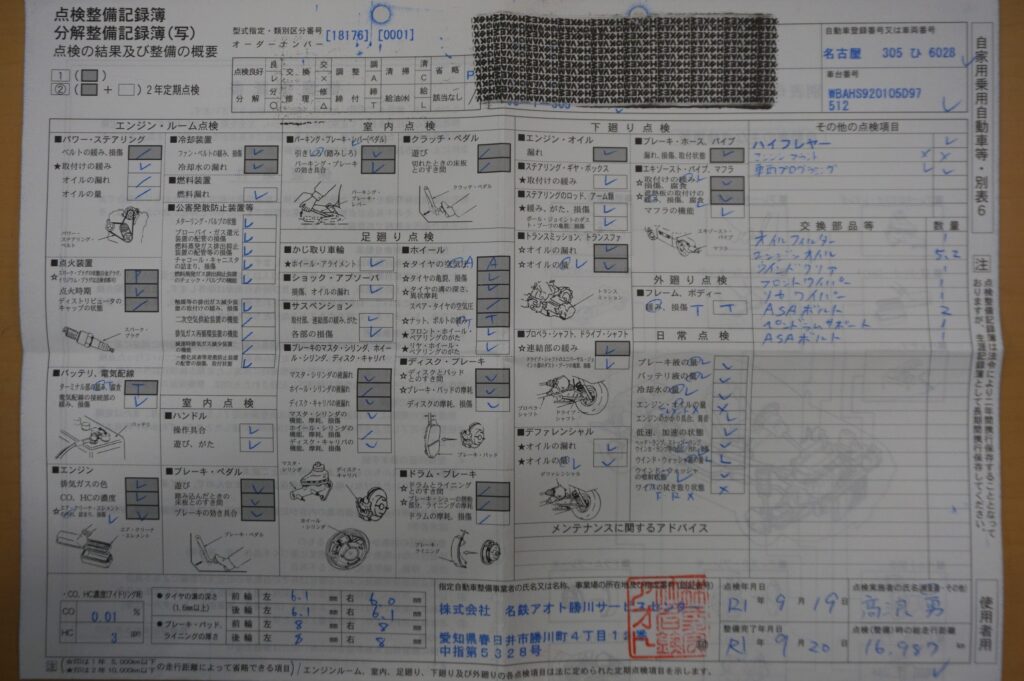 点検整備記録簿
分解整備記録簿(写)
点検の結果及び整備の概要
1 ( )
② ( + ) 2年定期点検
型式指定・類別区分番号 [18176] [0001]
オーダーナンバー
点検良好 レ 交換 × 調整 A 清掃 C 省略 P
分解 ○ 修理 △ 締付 T 給油(水) L 該当なし /
自動車登録番号又は車両番号
名古屋 305 ひ 6028
車台番号
WBAHS920105D97
512
自家用乗用自動車等・別表6
エンジン・ルーム点検
■パワー・ステアリング
ベルトの緩み、損傷
★取付けの緩み
オイルの漏れ
オイルの量
パワー・ステアリング・ベルト
■点火装置
点火時期
ディストリビュータのキャップの状態
スパーク・プラグ
■バッテリ、電気配線
ターミナル部の緩み、腐食 T
電気配線の接続部の緩み、損傷
バッテリ
■エンジン
排気ガスの色
CO、HCの濃度
エア・クリーナ・エレメント
■冷却装置
ファン・ベルトの緩み、損傷
冷却水の漏れ
■燃料装置
燃料漏れ
■公害発散防止装置等
メターリング・バルブの状態
ブローバイ・ガス還元装置の配管の損傷
燃料蒸発ガス排出抑止装置の配管等の損傷
チャコール・キャニスタの詰まり、損傷
燃料蒸発ガス排出抑止装置のチェック・バルブの機能
触媒等の排出ガス減少装置の取付けの緩み、損傷
二次空気供給装置の機能
排気ガス再循環装置の機能
減速時排気ガス減少装置の機能
一酸化炭素等発散防止装置の配管の損傷、取付状態
室内点検
■ハンドル
操作具合
遊び、がた
■ブレーキ・ペダル
遊び
踏み込んだときの床板とのすき間
ブレーキの効き具合
ブレーキ・ペダル
室内点検
■パーキング・ブレーキ・レバー(ペダル)
引きしろ(踏みしろ)
パーキング・ブレーキの効き具合
パーキング・ブレーキ・レバー
■クラッチ・ペダル
遊び
切れたときの床板とのすき間
クラッチ・ペダル
足廻り点検
■かじ取り車輪
★ホイール・アライメント
■ショック・アブソーバ
損傷、オイルの漏れ
■サスペンション
取付部、連結部の緩み、がた
各部の損傷
■ブレーキのマスタ・シリンダ、ホイール・シリンダ、ディスク・キャリパ
マスタ・シリンダの液漏れ
ホイール・シリンダの液漏れ
ディスク・キャリパの液漏れ
マスタ・シリンダの機能、摩耗、損傷
ホイール・シリンダの機能、摩耗、損傷
ディスク・キャリパの機能、摩耗、損傷
マスタ・シリンダ
ディスク・キャリパ
ホイール・シリンダ
■ホイール
☆タイヤの空気圧 A
☆タイヤの亀裂、損傷
☆タイヤの溝の深さ、異状摩耗
スペア・タイヤの空気圧
☆ナット、ボルトの緩み T
★フロント・ホイール・ベアリングのがた
★リヤ・ホイール・ベアリングのがた
■ディスク・ブレーキ
☆ディスクとパッドとのすき間
☆ブレーキ・パッドの摩耗
ディスクの摩耗、損傷
ブレーキ・パッド
■ドラム・ブレーキ
☆ドラムとライニングとのすき間
☆ブレーキ・シューの摺動部分、ライニングの摩耗
ドラムの摩耗、損傷
ブレーキ・ライニング
下廻り点検
■エンジン・オイル
漏れ
■ステアリング・ギヤ・ボックス
★取付けの緩み
■ステアリングのロッド、アーム類
★緩み、がた、損傷
ボール・ジョイントのダスト・ブーツの亀裂、損傷
■トランスミッション、トランスファ
☆オイルの漏れ
☆オイルの量
トランスミッション
■プロペラ・シャフト、ドライブ・シャフト
☆連結部の緩み
プロペラ・シャフト
ドライブ・シャフト
■デファレンシャル
★オイルの漏れ
★オイルの量
デファレンシャル
■ブレーキ・ホース、パイプ
漏れ、損傷、取付状態
■エキゾースト・パイプ、マフラ
取付けの緩み、損傷、腐食
遮熱板の取付けの緩み、損傷、腐食
マフラの機能
エキゾースト・パイプ
マフラ
外廻り点検
■フレーム、ボディー
緩み、損傷 T T
日常点検
ブレーキ液の量
バッテリ液の量
冷却水の量
エンジン・オイルの量
エンジンのかかり具合、異音
低速、加速の状態
ウインド・ウォッシャ液の量
ウインド・ウォッシャの噴射状態
ワイパの拭き取り状態
その他の点検項目
ハイフレヤー
交換部品等 数量
オイルフィルター 1
エンジンオイル 5.2
ウインドクリア 1
フロントワイパー 1
リヤワイパー 1
ASAボルト 2
ペンドラムサポート 1
ASAボルト 1
メンテナンスに関するアドバイス
注 点検整備記録簿は法令により二年間携行保存することとなっておりますが、生涯記録簿として長期間携行保存してください。
使用者用
・CO、HC濃度(アイドリング時)
CO 0.01 %
HC 3 ppm
●タイヤの溝の深さ (1.6mm以上)
前輪 左 6.1 mm 右 6.0 mm
後輪 左 6.1 mm 右 6.1 mm
●ブレーキ・パッド、ライニングの厚さ
前輪 左 8 mm 右 8 mm
後輪 左 8 mm 右 8 mm
株式会社 名鉄アオト勝川サービスセンター
愛知県春日井市勝川町4丁目1
中指第5328号
点検年月日
R1年 9月 19日
整備完了年月日
R1年 9月 20日
点検(整備)時の総走行距離
16,987 km
注 (☆印は1年 5,000km以下 ★印は2年 10,000km以下 の走行距離によって省略できる項目) エンジンルーム、室内、足廻り、下廻り及び外廻りの各点検項目は法に定められた定期点検項目を示します。